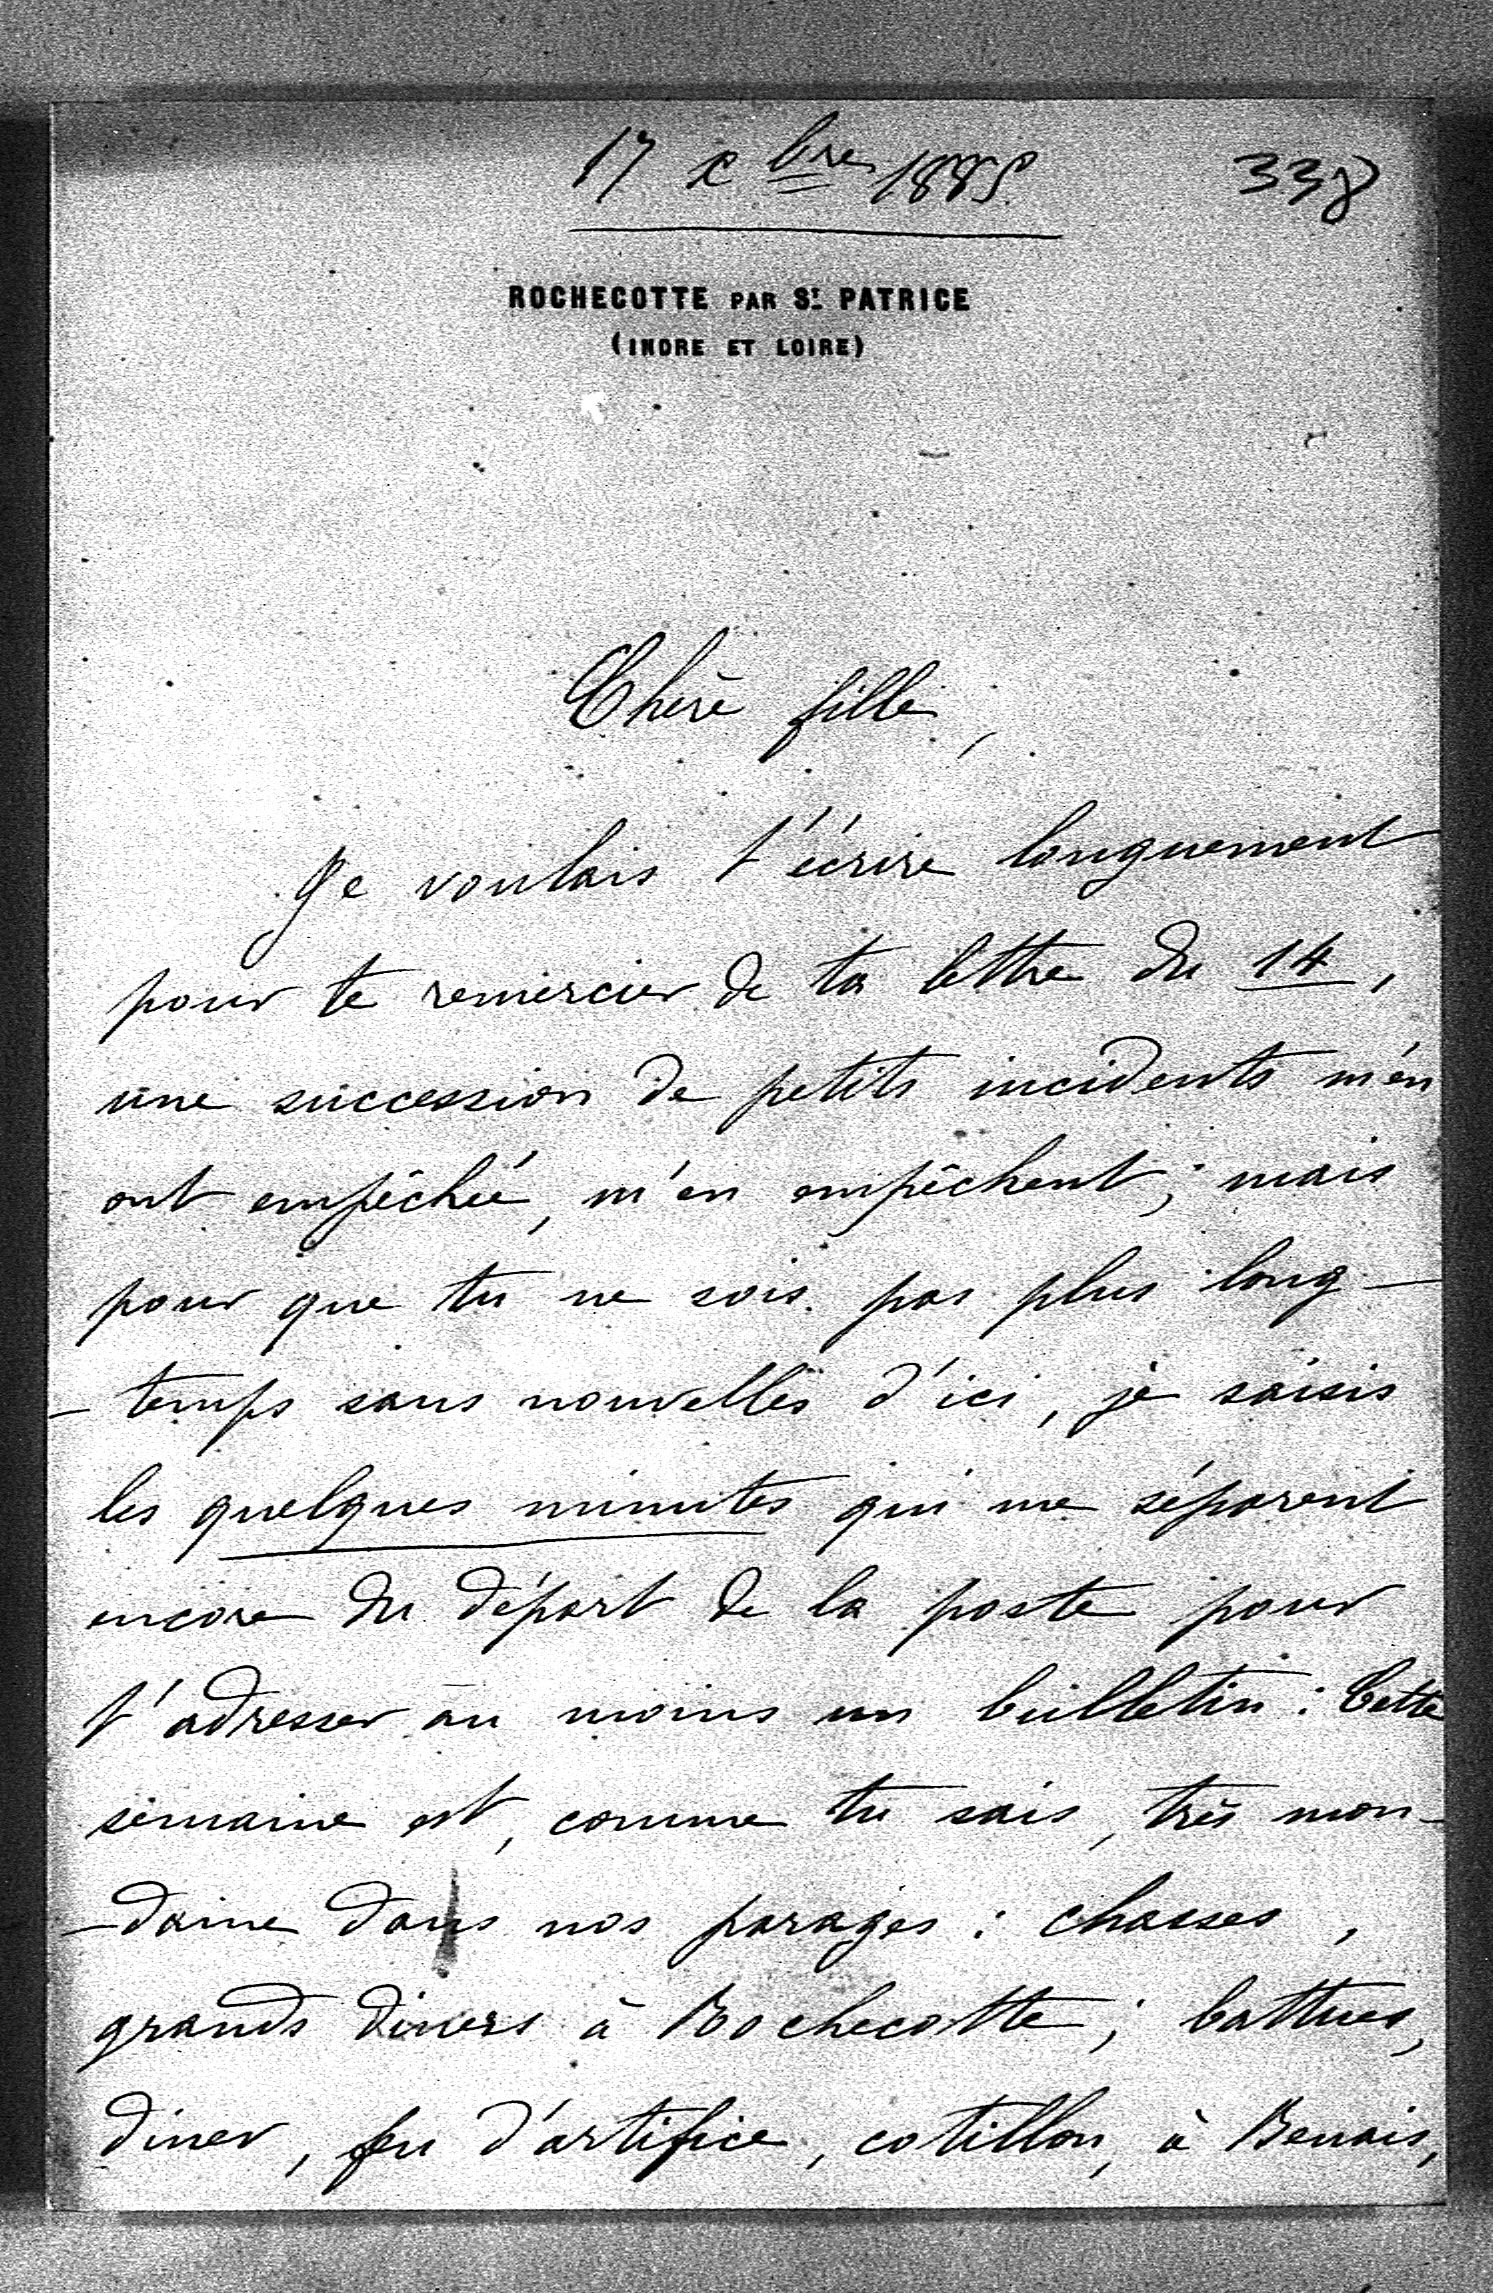 17 xbre 1885.
338
ROCHECOTTE PAR ST. PATRICE
(INDRE ET LOIRE)
Chère fille,
Je voulais t'écrire longuement
pour te remercier de ta lettre du 14,
une succession de petits incidents m'en
ont empêché, m'en empêchent; mais
pour que tu ne sois pas plus long-
-temps sans nouvelles d'ici, je saisis
les quelques minutes qui me séparent
encore du départ de la poste pour
t'adresser au moins un bulletin: Cette
semaine est, comme tu sais, très mon-
-daine dans nos parages: chasses,
grands diners à Rochecotte; battues,
diner, feu d'artifice, cotillon, à Benais,